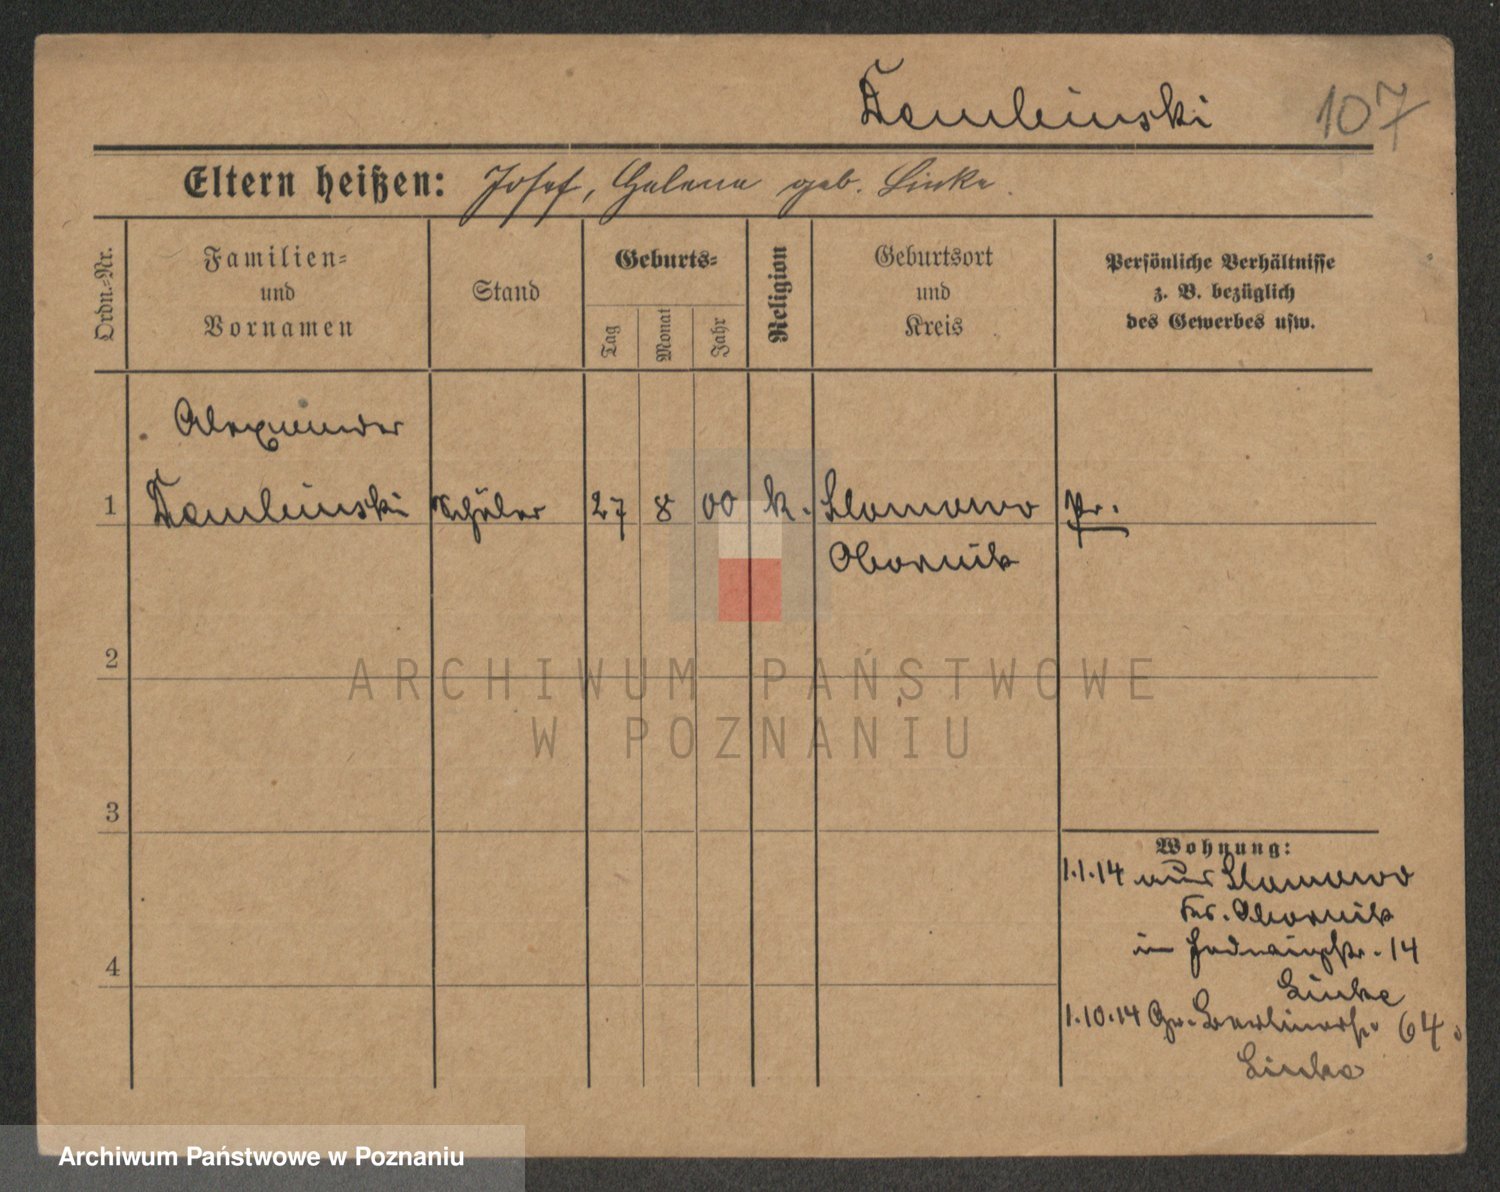 Dembinski 107
Eltern heißen: Josef, Helena geb. Linke.
Ordn.=Nr.
Familien=
und
Vornamen
Stand
Geburts=
Tag
Monat
Jahr
Religion
Geburtsort
und
Kreis
Persönliche Verhältnisse
z. B. bezüglich
des Gewerbes usw.
Alexander
1 Schüler 27 8 00 k. Slomowo Pr.
Obornik
2
3
4
Wohnung:
1.1.14 aus Slomowo
Obornik
in 14
Linke
1.10.14 Gr. Berlinerstr. 64.
Linke
ARCHIWUM PAŃSTWOWE
W POZNANIU
Archiwum Państwowe w Poznaniu